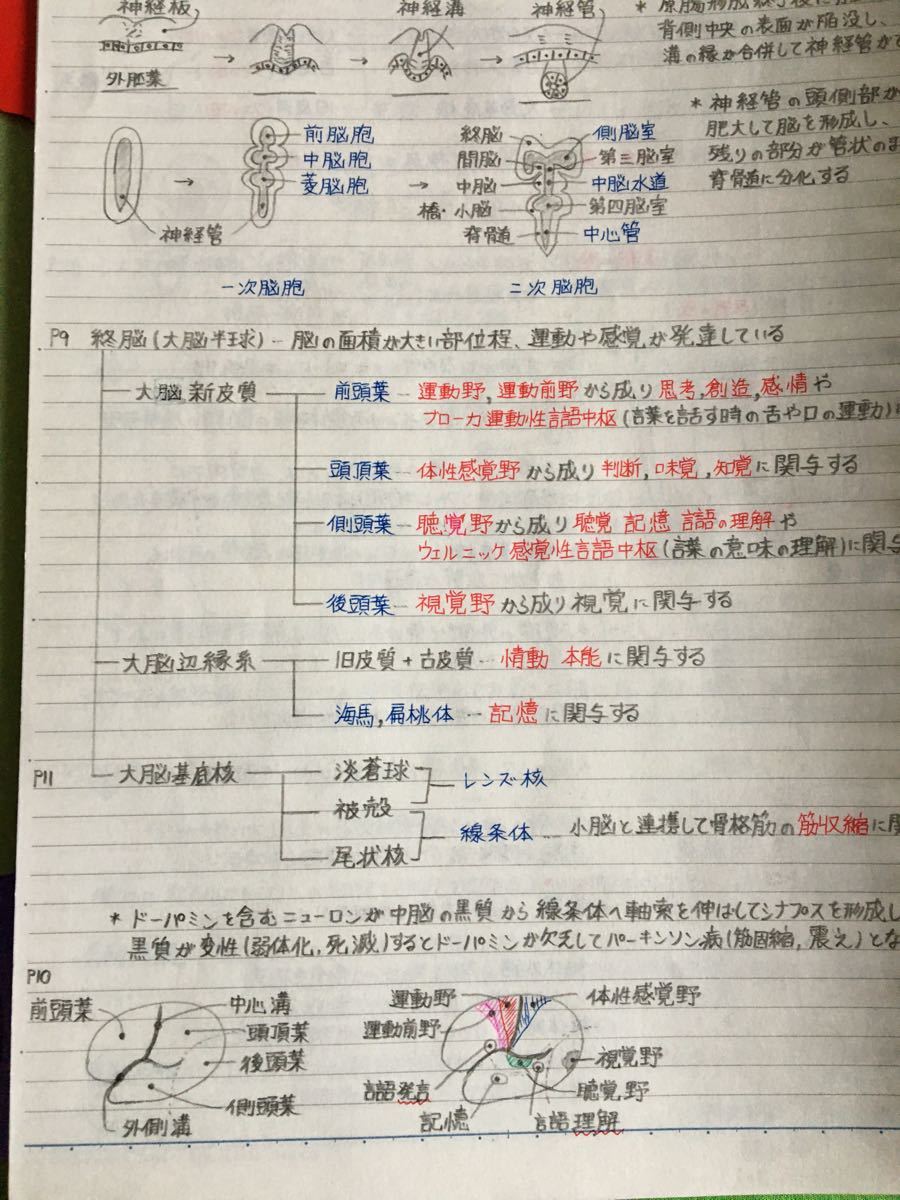 神経板
神経溝
神経管
外胚葉
背側中央の表面が陥没し、
溝の縁が合併して神経管が
前脳胞
中脳胞
菱脳胞
神経管
一次脳胞
終脳
間脳
中脳
橋・小脳
脊髄
側脳室
第三脳室
中脳水道
第四脳室
中心管
二次脳胞
* 神経管の頭側部が
肥大して脳を形成し、
残りの部分が管状のま
脊骨道に分化する
P9 終脳(大脳半球)--脳の面積が大きい部位程、運動や感覚が発達している
大脳新皮質
前頭葉 - 運動野,運動前野から成り思考,創造,感情や
ブローカ運動性言語中枢(言葉を話す時の舌や口の運動)
頭頂葉 - 体性感覚野から成り判断,味覚,知覚に関与する
側頭葉 - 聴覚野から成り聴覚 記憶 言語の理解や
ウェルニッケ感覚性言語中枢(言葉の意味の理解)に関与
後頭葉 - 視覚野から成り視覚に関与する
大脳辺縁系
旧皮質+古皮質--情動 本能に関与する
海馬,扁桃体 -- 記憶に関与する
P11 大脳基底核
淡蒼球
被殻
尾状核
レンズ核
線条体 -- 小脳と連携して骨格筋の筋収縮に関
* ドーパミンを含むニューロンが中脳の黒質から線条体へ軸索を伸ばしてシナプスを形成し
黒質が変性(弱体化,死滅)するとドーパミンが欠乏してパーキンソン病(筋固縮,震え)とな
P10
前頭葉
中心溝
頭頂葉
後頭葉
側頭葉
外側溝
運動野
運動前野
言語発言
記憶
体性感覚野
視覚野
聴覚野
言語理解